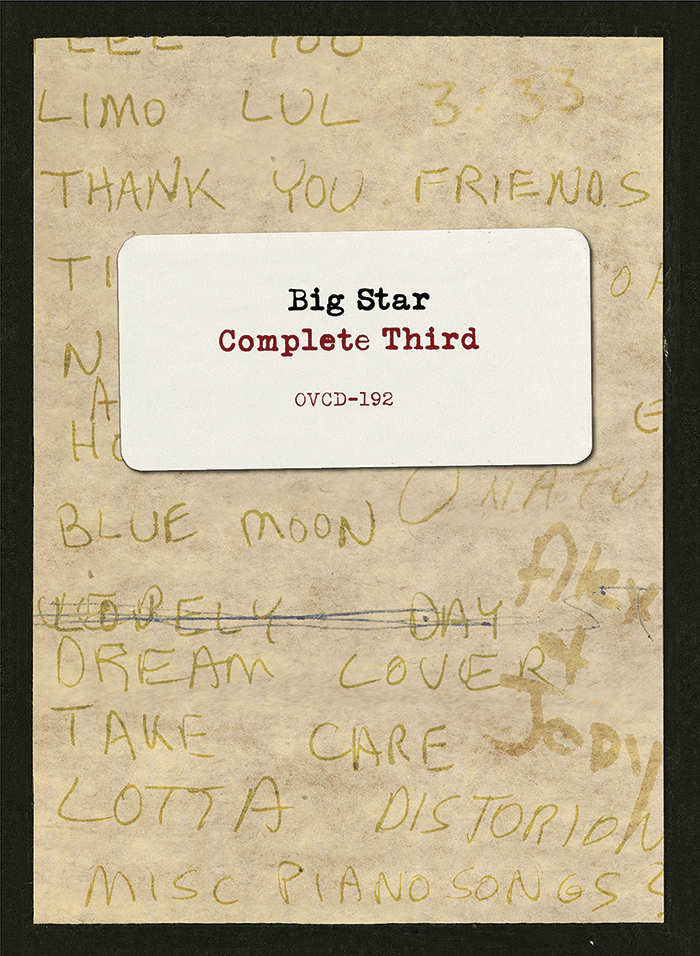 LIMO LUL 3:33
THANK YOU FRIENDS
TI
Big Star
Complete Third
OVCD-192
N
A
HO
BLUE MOON
Alex
LOVELY DAY
+
DREAM LOVER
Jody
TAKE CARE
LOTTA DISTORION
MISC PIANO SONGS